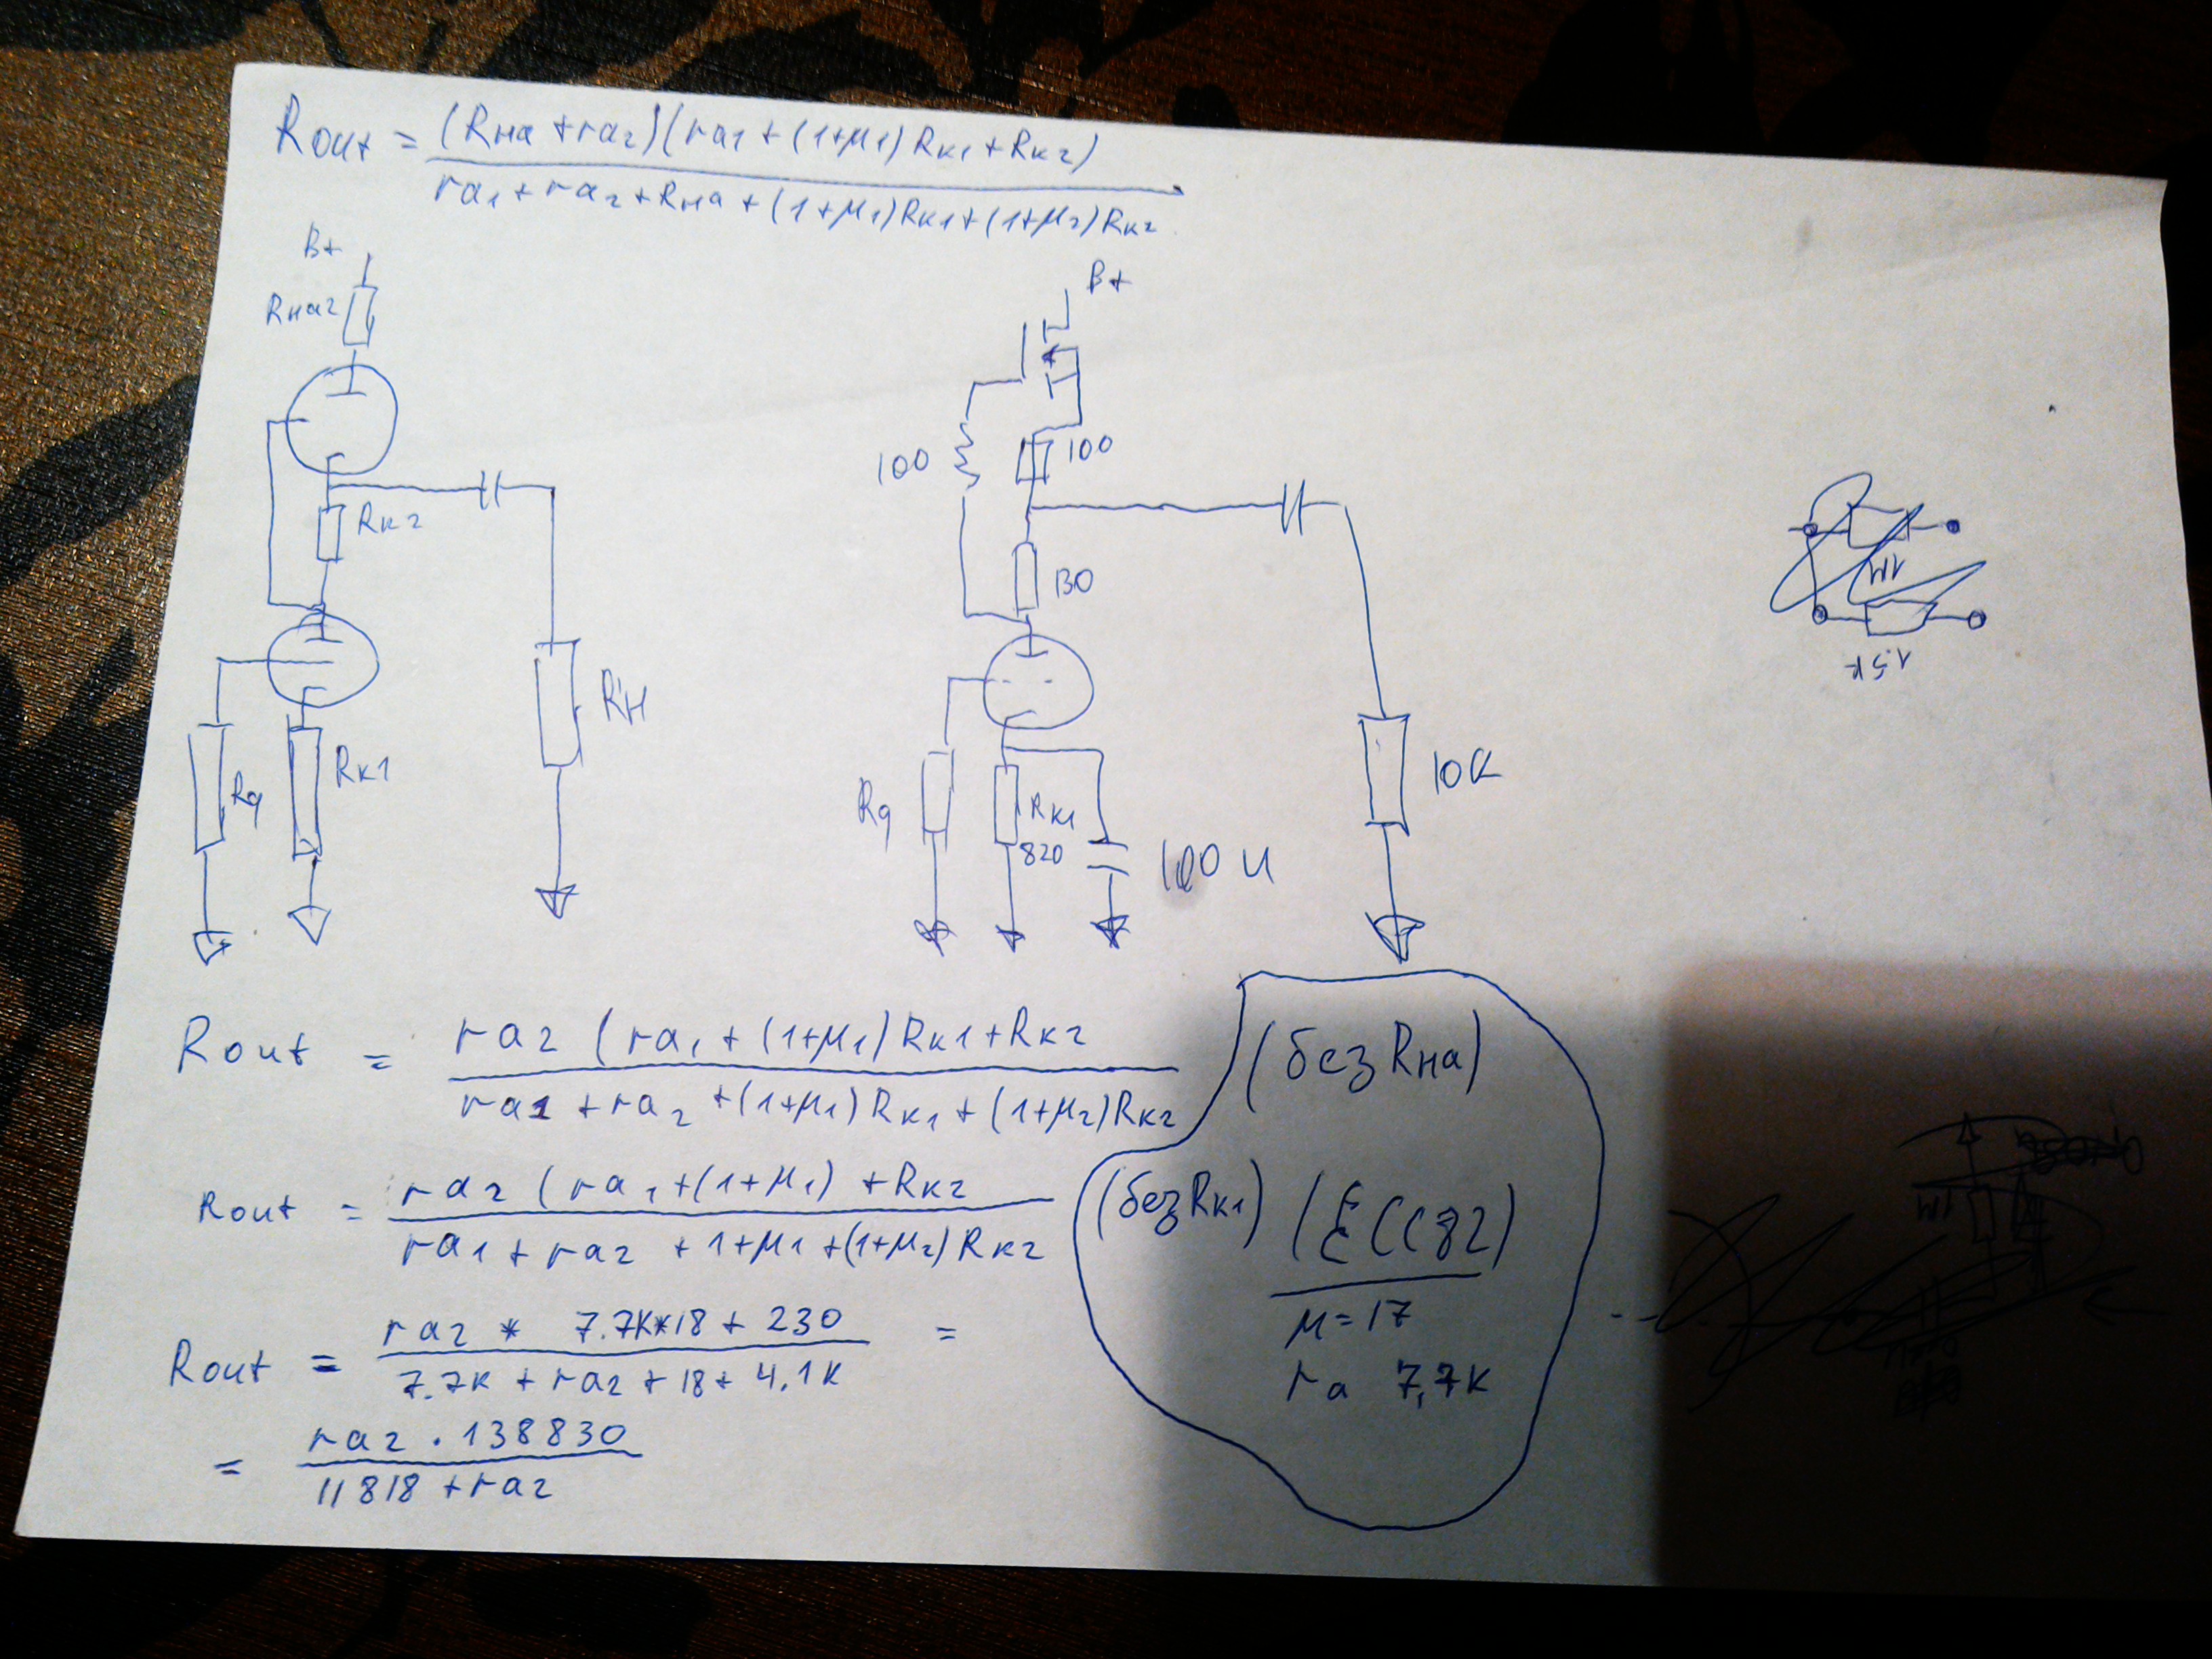 Rout = (Rна + ra2)(ra1 + (1+μ1) Rк1 + Rк2) / ra1 + ra2 + Rна + (1+μ1)Rк1 + (1+μ2)Rк2
B+
Rна2
Rк2
Rн
Rк1
Rg
B+
100
100
130
10K
Rg
Rк1
820
100 u
1M
1.5K
Rout = ra2 (ra1 + (1+μ1) Rк1 + Rк2 / ra1 + ra2 + (1+μ1) Rк1 + (1+μ2) Rк2
(без Rна)
Rout = ra2 (ra1 + (1+μ1) + Rк2 / ra1 + ra2 + 1+μ1 + (1+μ2) Rк2
(без Rк1) (ECC82)
μ = 17
ra 7,7K
Rout = ra2 * 7.7K*18 + 230 / 7.7K + ra2 + 18 + 4.1K =
= ra2 · 138830 / 11818 + ra2
1M